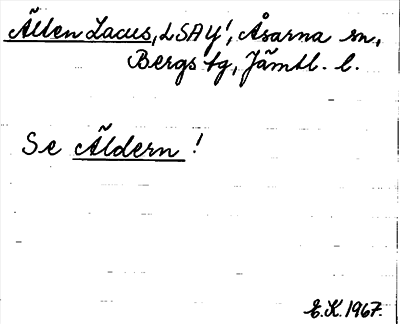 Älten Lacus, LSAY!, Åsarna sn,
Bergs tg, Jämtl. l.
Se Äldern!
E.K. 1967.